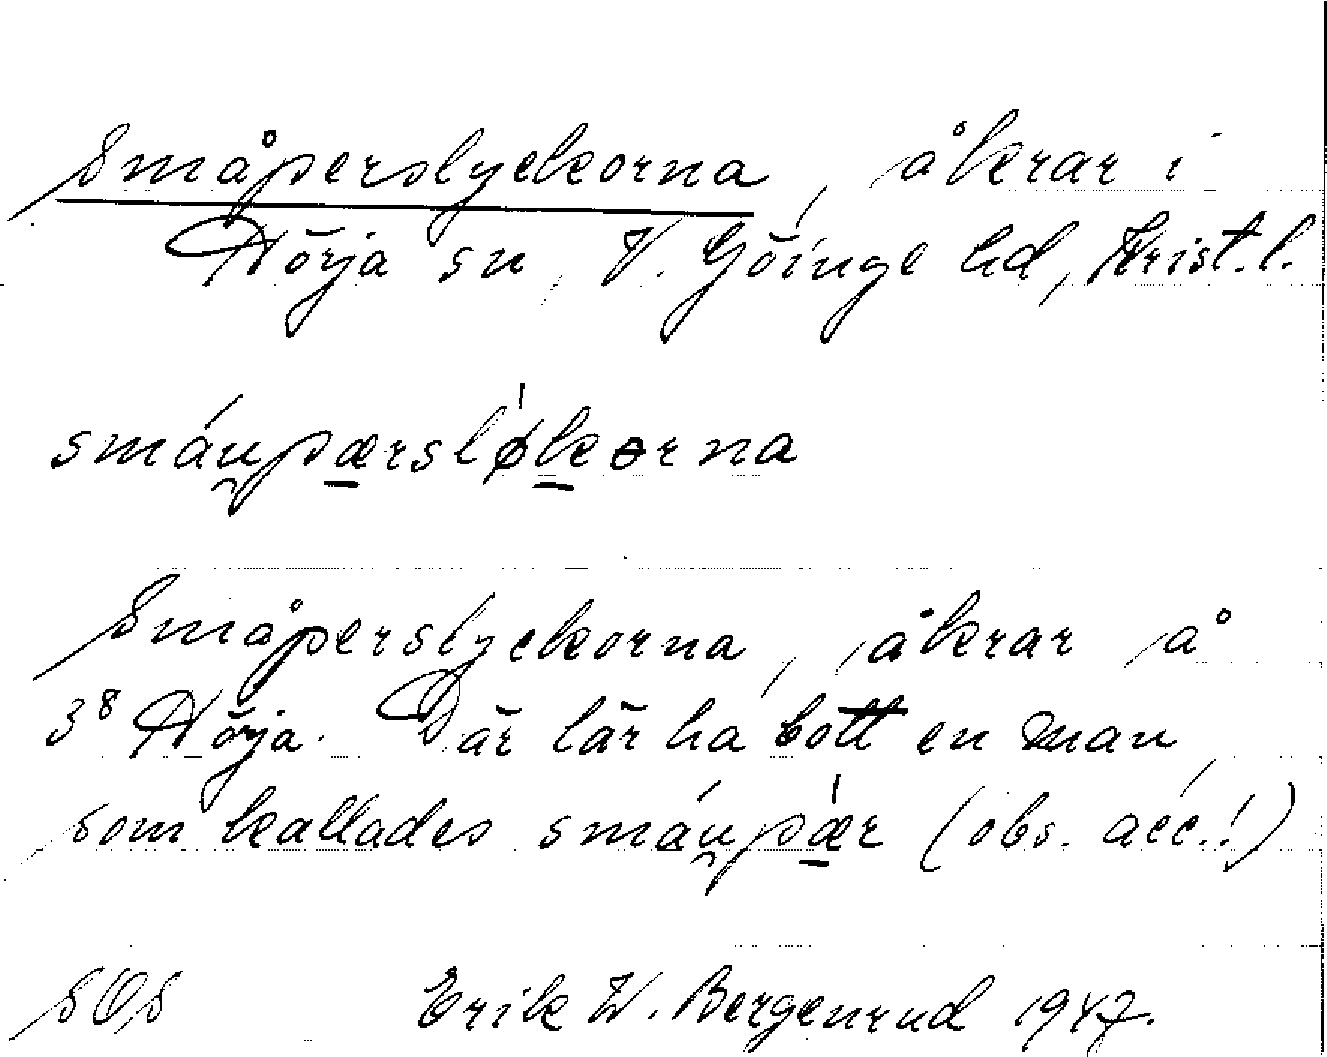 Småperslyckorna, åkrar i
Nörja sn, V. Göinge hd, Krist. l.
smáu̯pærslø̍kɵrna
Småperslyckorna, åkrar å
3⁸ Nörja. Där lär ha bott en man
som kallades smáu̯pæ̍r (obs. acc.!)
SOS Erik W. Bergenrud 1947.